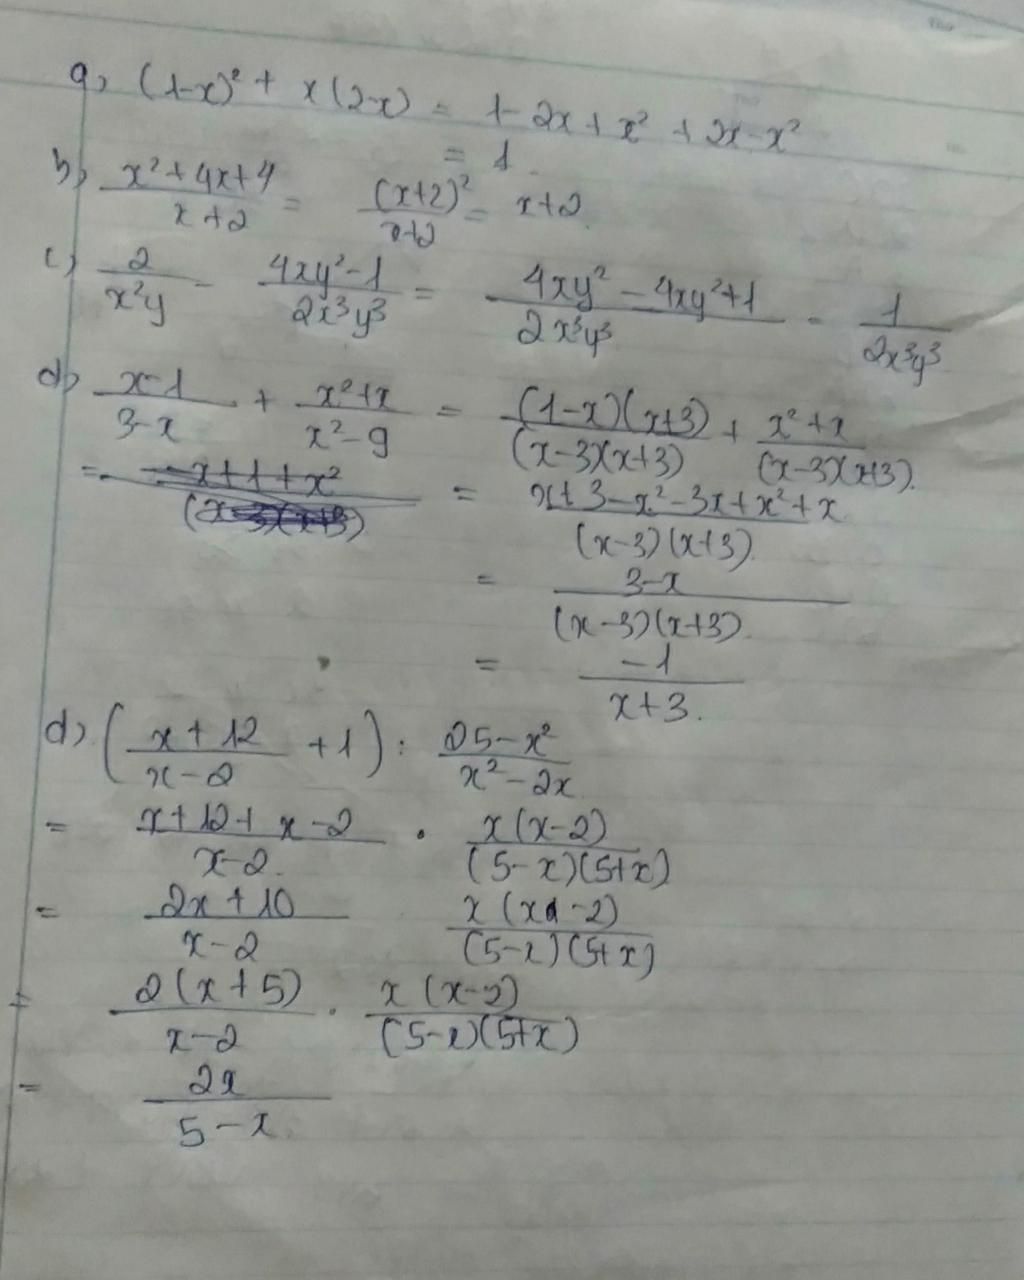 a) (1-x)² + x(2-x) = 1 - 2x + x² + 2x - x²
= 1
b) \frac{x²+4x+4}{x+2} = \frac{(x+2)²}{x+2} = x+2
c) \frac{2}{x²y} - \frac{4xy²-1}{2x³y³} = \frac{4xy² - 4xy²+1}{2x³y³} = \frac{1}{2x³y³}
d) \frac{x-1}{3-x} + \frac{x²+x}{x²-9} = \frac{(1-x)(x+3)}{(x-3)(x+3)} + \frac{x²+x}{(x-3)(x+3)}
= \frac{x+3-x²-3x+x²+x}{(x-3)(x+3)}
= \frac{3-x}{(x-3)(x+3)}
= \frac{-1}{x+3}
d) (\frac{x+12}{x-2} + 1) : \frac{25-x²}{x²-2x}
= \frac{x+12+x-2}{x-2} . \frac{x(x-2)}{(5-x)(5+x)}
= \frac{2x+10}{x-2} \frac{x(x-2)}{(5-x)(5+x)}
= \frac{2(x+5)}{x-2} . \frac{x(x-2)}{(5-x)(5+x)}
= \frac{2x}{5-x}